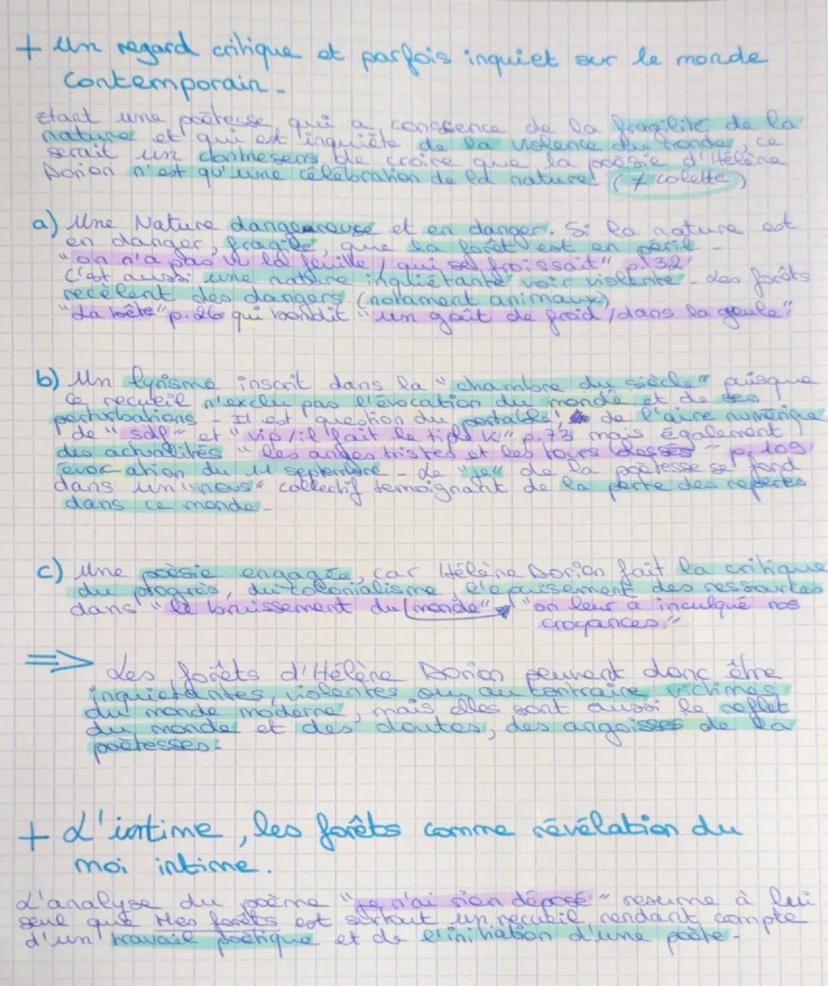 + Un regard critique et parfois inquiet sur le monde
contemporain.
Etant une poètesse qui a conscience de la fragilité de la
nature et qui est inquiète de la violence du monde, ce
serait un contresens de croire que la poésie d'Hélène
Dorion n'est qu'une célébration de la nature (≠ colette)
a) Une Nature dangeureuse et en danger. Si la nature est
en danger, fragile, que la forêt est en péril -
"on n'a pas vu la feuille / qui se froissait" p.32
c'est aussi une nature inquiétante voir violente - Les forêts
recèlent des dangers (notament animaux)
"La bête" p.26 qui bondit "un goût de froid / dans la gueule"
b) Un lyrisme inscrit dans la "chambre du siècle" puisque
ce recueil n'exclu pas l'évocation du monde et de ses
perturbations - Il est question du portable, de l'aire numérique
de "sdf" et "vip / il fait le tip k" p.73 mais également
des actualités "les anges tristes et les tours blessés" p.109
évocation du 11 septembre - Le "je" de la poètesse se fond
dans un "nous" collectif temoignant de la perte des repères
dans ce monde -
c) Une poèsie engagée, car Hélène Dorion fait la critique
du progrès, du colonialisme l'épuisement des ressources
dans "le bruissement du monde" "on leur a inculqué nos
croyances."
⇒ Les forêts d'Hélène Dorion peuvent donc être
inquietantes, violentes ou au contraire victimes
du monde moderne, mais elles sont aussi le reflet
du monde et des doutes, des angoisses de la
poètesses.
+ L'intime, les forêts comme révélation du
moi intime.
L'analyse du poème "je n'ai rien déposé" resume à lui
seul que Mes forêts est surtout un recueil rendant compte
d'un travail poètique et de l'initiation d'une poète -